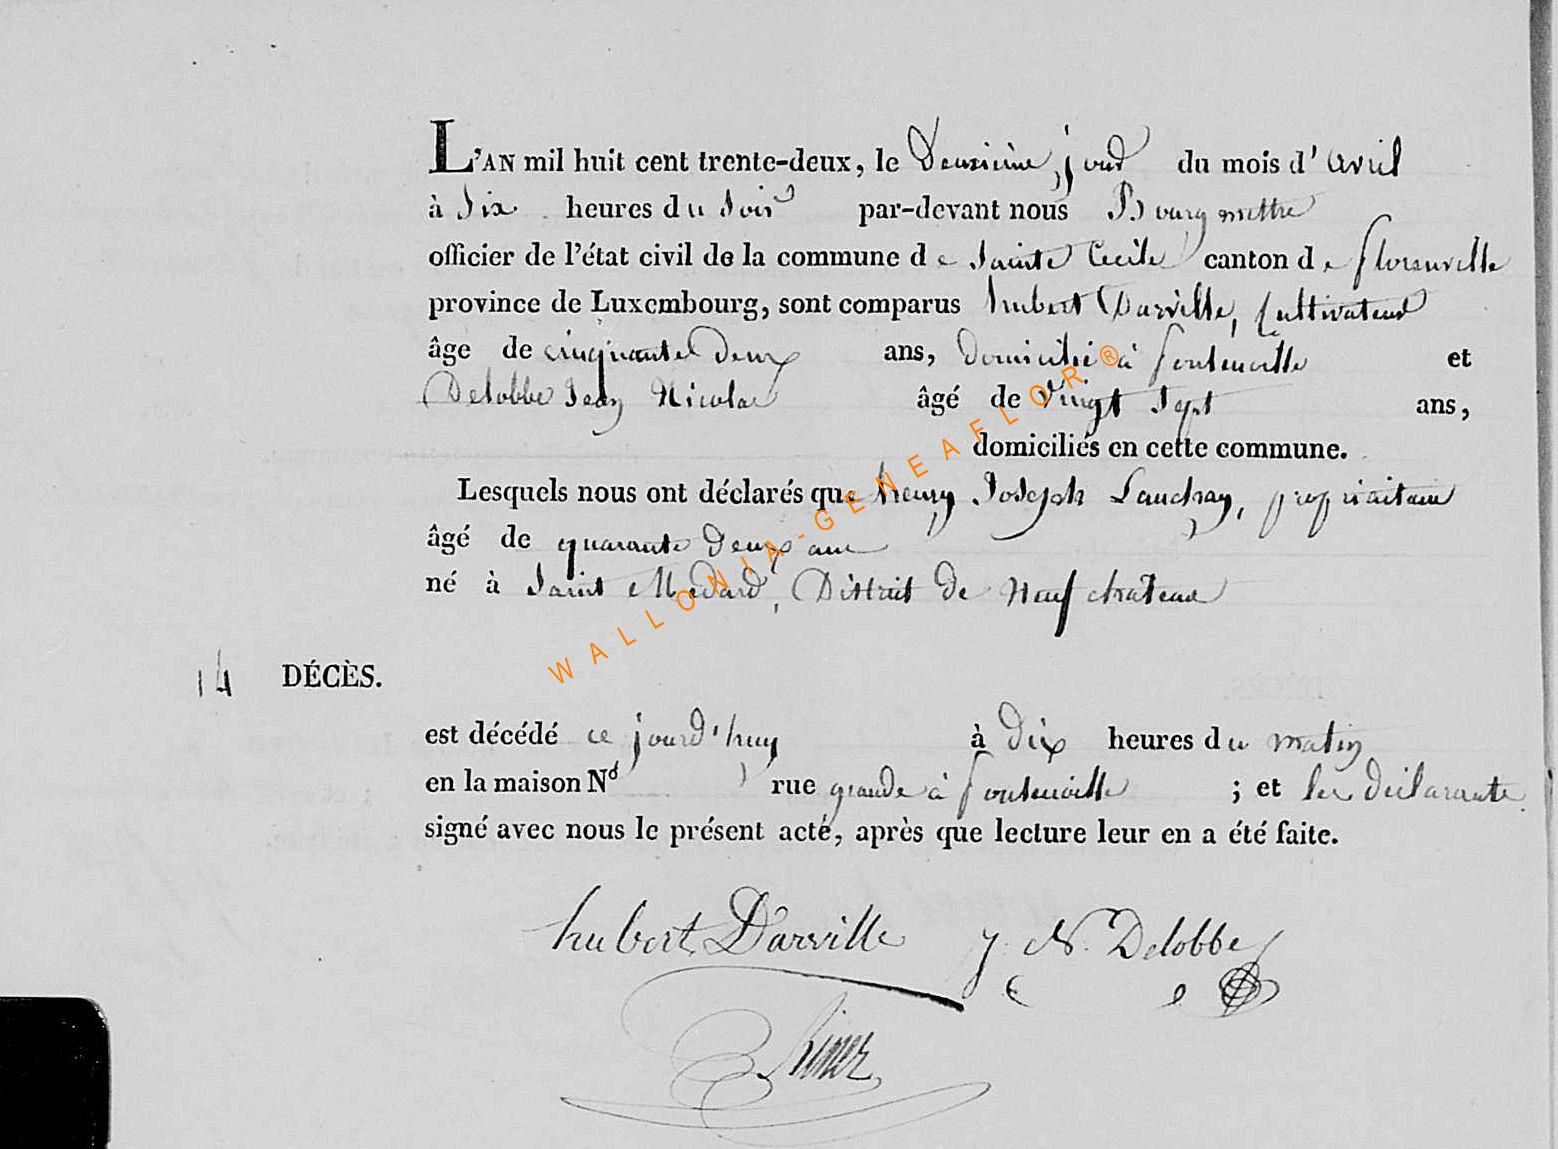 L'AN mil huit cent trente-deux, le Deuxième jour du mois d'avril
à six heures du soir par-devant nous Bourgmettre
officier de l'état civil de la commune de Sainte Cecile canton de florenville
province de Luxembourg, sont comparus hubert Darville, Cultivateur
âge de cinquante Deux ans, Domicilié à fontenoille et
Delobbe Jean Nicolas âgé de Vingt Sept ans,
domiciliés en cette commune.
Lesquels nous ont déclarés que henry Joseph Lanchay, propriaitaire
âgé de quarante Deux ans
né à Saint Médard, District de Neufchateau
14 DÉCÈS.
est décédé ce jourd'huy à Dix heures du matin
en la maison No rue grande à fontenoille ; et les déclarants
signé avec nous le présent acte, après que lecture leur en a été faite.
hubert Darville J. N. Delobbe
WALLONIA-GENEAFLOR®